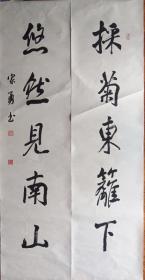 採菊東籬下
悠然見南山
家勇书